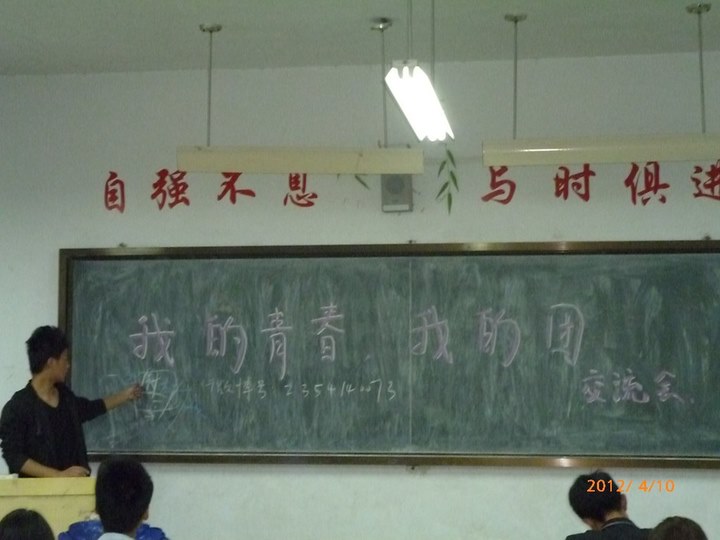 自强不息 与时俱进
我的青春 我的团
交流会
2012/ 4/10